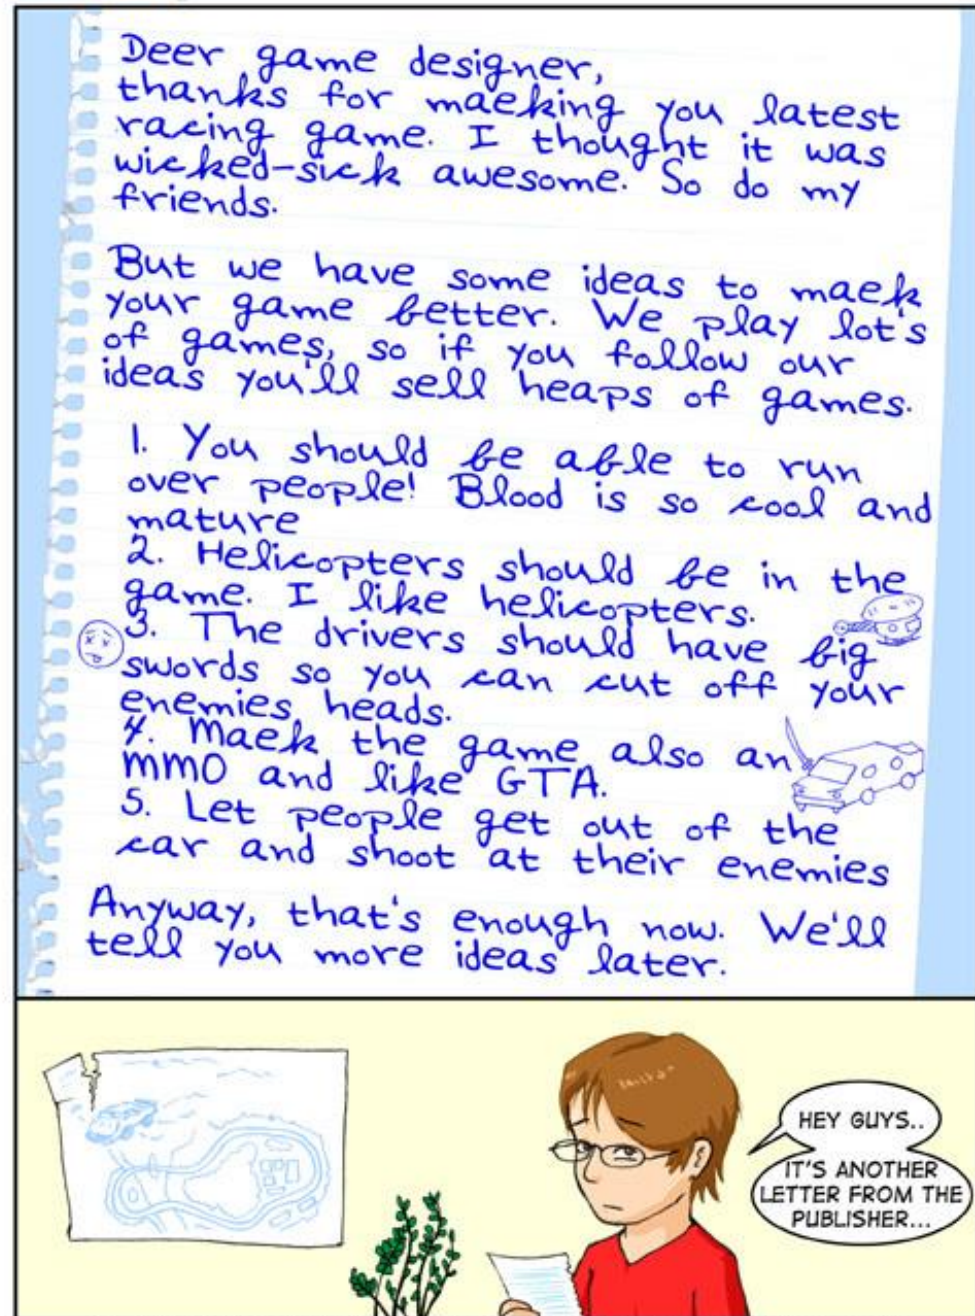 Deer game designer,
thanks for maeking you latest
racing game. I thought it was
wicked-sick awesome. So do my
friends.
But we have some ideas to maek
your game better. We play lot's
of games, so if you follow our
ideas you'll sell heaps of games.
1. You should be able to run
over people! Blood is so cool and
mature
2. Helicopters should be in the
game. I like helicopters.
3. The drivers should have big
swords so you can cut off your
enemies heads.
4. Maek the game also an
MMO and like GTA.
5. Let people get out of the
car and shoot at their enemies
Anyway, that's enough now. We'll
tell you more ideas later.
HEY GUYS..
IT'S ANOTHER
LETTER FROM THE
PUBLISHER...